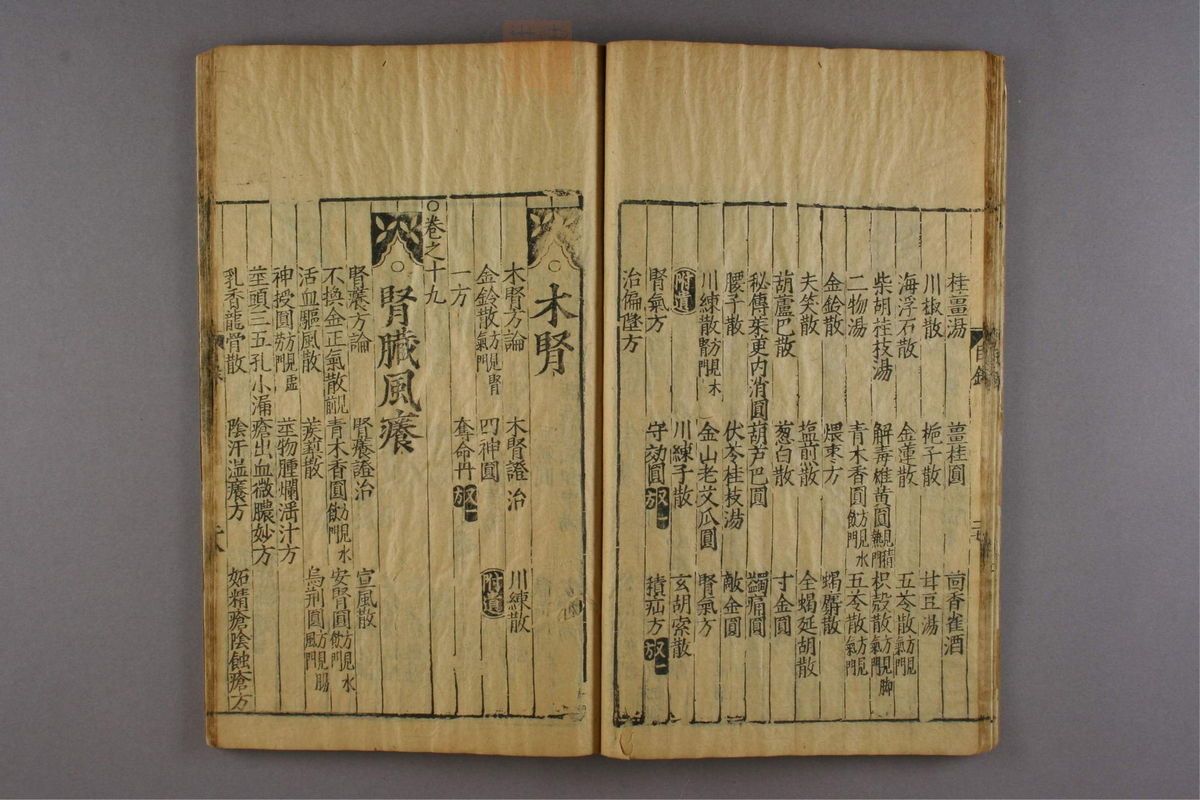 桂薑湯 薑桂圓 茴香雀酒
川椒散 梔子散 甘豆湯
海浮石散 金薑散 五苓散方見氣門
柴胡桂枝湯 解毒雄黃圓方見積熱門 枳殼散方見脚氣門
二物湯 青木香圓方見水飲門 五苓散方見氣門
金鈴散 煨棗方 蝎麝散
夫笑散 塩煎散 全蝎延胡散
葫蘆巴散 葱白散 寸金圓
秘傳茱萸内消圓 葫芦巴圓 蠲痛圓
腰子散 伏苓桂枝湯 敵金圓
川練散方見木腎門 金山老艾瓜圓 腎氣方
附遺 川練子散 玄胡索散
腎氣方 守効圓放一 積疝方放一
治偏墜方
目録
木腎
木腎方論 木腎證治 川練散
金鈴散方見腎氣門 四神圓 附遺
一方 奪命丹放一
○卷之十九
腎臟風癢
腎癢方論 腎癢證治 宣風散
不換金正氣散見前 青木香圓方見水飲門 安腎圓方見水飲門
活血驅風散 蒺䔧散 烏荆圓方見腸風門
神授圓方見虛勞門 莖物腫爛湯汁方
莖頭三五孔小漏瘡出血微膿妙方
乳香龍骨散 陰汗溫癢方 妬精瘡陰蝕瘡方